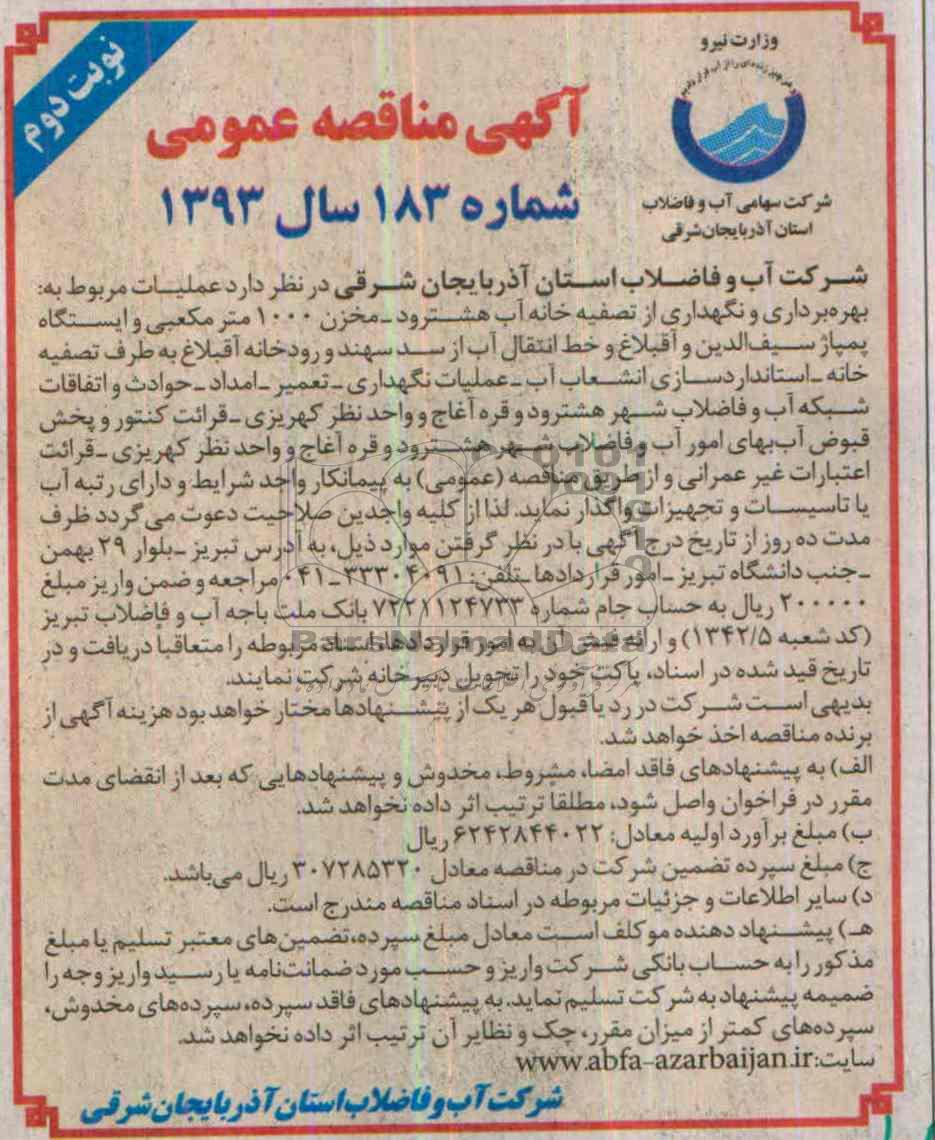 نوبت دوم
وزارت نیرو
شرکت سهامی آب و فاضلاب
استان آذربایجان‌شرقی
آگهی مناقصه عمومی
شماره ۱۸۳ سال ۱۳۹۳
شرکت آب و فاضلاب استان آذربایجان شرقی در نظر دارد عملیات مربوط به:
بهره‌برداری و نگهداری از تصفیه خانه آب هشترود ـ مخزن ۱۰۰۰ متر مکعبی و ایستگاه
پمپاژ سیف‌الدین و آقبلاغ و خط انتقال آب از سد سهند و رودخانه آقبلاغ به طرف تصفیه
خانه ـ استانداردسازی انشعاب آب ـ عملیات نگهداری ـ تعمیر ـ امداد ـ حوادث و اتفاقات
شبکه آب و فاضلاب شهر هشترود و قره آغاج و واحد نظر کهریزی ـ قرائت کنتور و پخش
قبوض آب‌بهای امور آب و فاضلاب شهر هشترود و قره آغاج و واحد نظر کهریزی ـ قرائت
اعتبارات غیر عمرانی و از طریق مناقصه (عمومی) به پیمانکار واجد شرایط و دارای رتبه آب
یا تاسیسات و تجهیزات واگذار نماید. لذا از کلیه واجدین صلاحیت دعوت می‌گردد ظرف
مدت ده روز از تاریخ درج آگهی با در نظر گرفتن موارد ذیل، به آدرس تبریز ـ بلوار ۲۹ بهمن
ـ جنب دانشگاه تبریز ـ امور قراردادها ـ تلفن: ۳۳۳۰۴۰۹۱ـ۰۴۱ مراجعه و ضمن واریز مبلغ
۲۰۰۰۰۰ ریال به حساب جام شماره ۷۲۲۱۱۲۴۷۳۳ بانک ملت باجه آب و فاضلاب تبریز
(کد شعبه ۱۳۴۲/۵) و ارائه فیش آن به امور قراردادها، اسناد مربوطه را متعاقبا دریافت و در
تاریخ قید شده در اسناد، پاکت خود را تحویل دبیرخانه شرکت نمایند.
بدیهی است شرکت در رد یا قبول هر یک از پیشنهادها مختار خواهد بود هزینه آگهی از
برنده مناقصه اخذ خواهد شد.
الف) به پیشنهادهای فاقد امضا، مشروط، مخدوش و پیشنهادهایی که بعد از انقضای مدت
مقرر در فراخوان واصل شود، مطلقا ترتیب اثر داده نخواهد شد.
ب) مبلغ برآورد اولیه معادل: ۶۲۴۲۸۴۴۰۲۲ ریال
ج) مبلغ سپرده تضمین شرکت در مناقصه معادل ۳۰۷۲۸۵۳۲۰ ریال می‌باشد.
د) سایر اطلاعات و جزئیات مربوطه در اسناد مناقصه مندرج است.
هـ) پیشنهاد دهنده موکلف است معادل مبلغ سپرده، تضمین‌های معتبر تسلیم یا مبلغ
مذکور را به حساب بانکی شرکت واریز و حسب مورد ضمانت‌نامه یا رسید واریز وجه را
ضمیمه پیشنهاد به شرکت تسلیم نماید. به پیشنهادهای فاقد سپرده، سپرده‌های مخدوش،
سپرده‌های کمتر از میزان مقرر، چک و نظایر آن ترتیب اثر داده نخواهد شد.
سایت: www.abfa-azarbaijan.ir
شرکت آب و فاضلاب استان آذربایجان شرقی